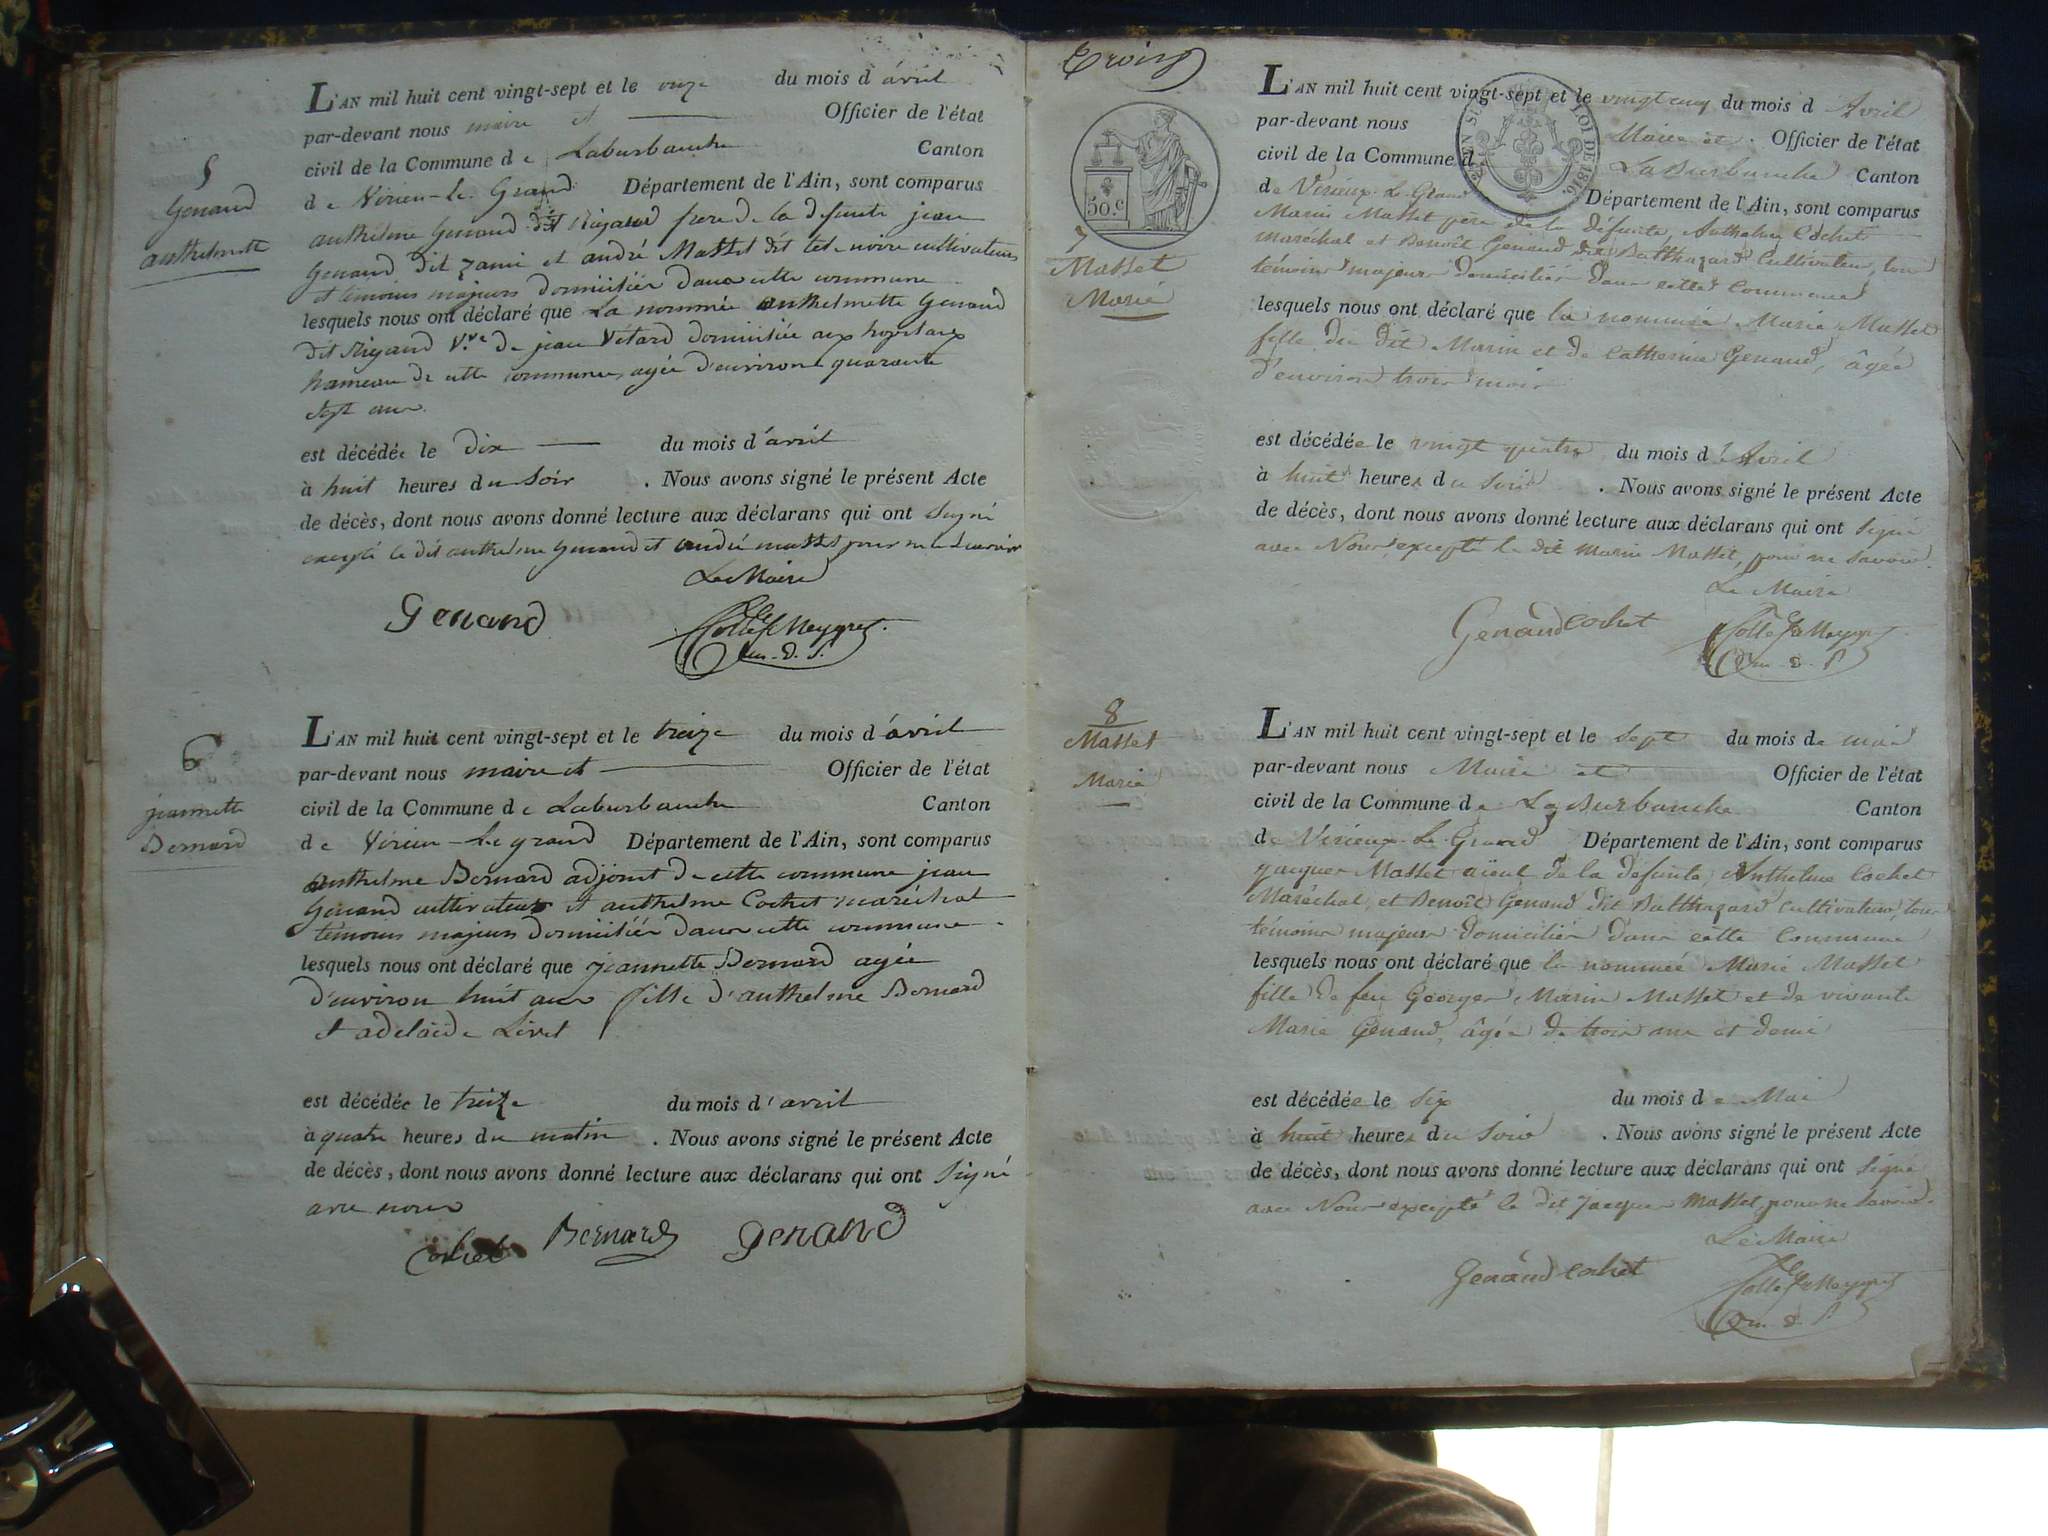 5
Genand
anthelmette
L'AN mil huit cent vingt-sept et le onze du mois d'avril
par-devant nous maire et Officier de l'état
civil de la Commune de Laburbanche Canton
de Virieu-le-Grand Département de l'Ain, sont comparus
anthelme Genand dit Rigaud frere de la defunte jean
Genand dit zami et andré Masset dit tete noire cultivateurs
et temoins majeurs domiciliés dans cette commune
lesquels nous ont déclaré que La nommée anthelmette Genand
dit Rigaud Vve de jean Vétard domiciliée aux hopitaux
hameau de cette commune, agée d'environ quarante
sept ans
est décédée le dix du mois d'avril
à huit heures du Soir . Nous avons signé le présent Acte
de décès, dont nous avons donné lecture aux déclarans qui ont Signé
excepté le dit anthelme Genand et andré masset pour ne le savoir
Le Maire
Genand
6
jeannette
Bernard
L'AN mil huit cent vingt-sept et le treize du mois d'avril
par-devant nous maire et Officier de l'état
civil de la Commune de Laburbanche Canton
de Virieu-le grand Département de l'Ain, sont comparus
anthelme Bernard adjoint de cette commune jean
Genand cultivateur et anthelme Cochet maréchal
témoins majeurs domiciliés dans cette commune
lesquels nous ont déclaré que jeannette Bernard agée
d'environ huit ans fille d'anthelme Bernard
et adelaïde Livet
est décédée le treize du mois d'avril
à quatre heures du matin . Nous avons signé le présent Acte
de décès, dont nous avons donné lecture aux déclarans qui ont Signé
avec nous
Cochet Bernard Genand
Trois
50.c
LOI DE 1816.
7
Masset
Marie
L'AN mil huit cent vingt-sept et le vingt cinq du mois d Avril
par-devant nous Maire et Officier de l'état
civil de la Commune d La Burbanche Canton
de Virieux-Le-Grand Département de l'Ain, sont comparus
Marin Masset père de la défunte, Anthelme Cochet
maréchal et Benoît Genand dit Balthazard Cultivateur, tous
témoins majeurs domiciliés dans cette Commune
lesquels nous ont déclaré que la nommée Marie Masset
fille du dit Marin et de Catherine Genand, âgée
d'environ trois mois
est décédée le vingt quatre du mois d'Avril
à huit heures du soir . Nous avons signé le présent Acte
de décès, dont nous avons donné lecture aux déclarans qui ont Signé
avec Nous excepté le dit Marin Masset, pour ne savoir.
Le Maire
Genand Cochet
8
Masset
Marie
L'AN mil huit cent vingt-sept et le Sept du mois de mai
par-devant nous Maire et Officier de l'état
civil de la Commune de La Burbanche Canton
de Virieux-Le-Grand Département de l'Ain, sont comparus
Jacques Masset aïeul de la defunte, Anthelme Cochet
Maréchal, et Benoît Genand dit Balthazard Cultivateur, tous
témoins majeurs domiciliés dans cette Commune
lesquels nous ont déclaré que la nommée Marie Masset
fille de feu Georges, Marin Masset et de vivante
Marie Genand, âgée de trois ans et demi
est décédée le Six du mois de Mai
à huit heures du Soir . Nous avons signé le présent Acte
de décès, dont nous avons donné lecture aux déclarans qui ont Signé
avec Nous excepté le dit Jacques Masset, pour ne savoir.
Le Maire
Genand Cochet